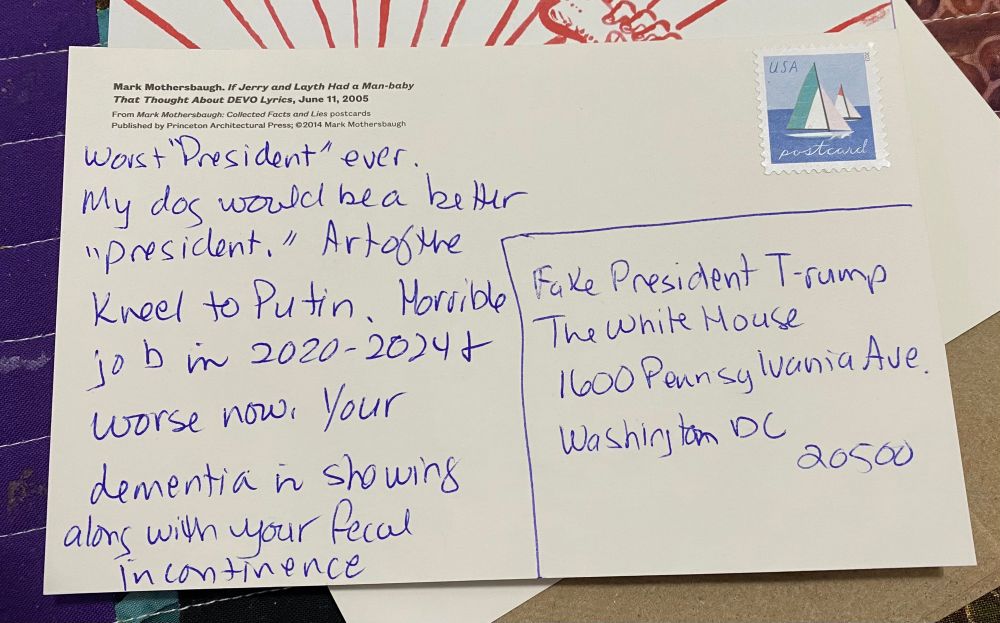 Mark Mothersbaugh. If Jerry and Layth Had a Man-baby
That Thought About DEVO Lyrics, June 11, 2005
From Mark Mothersbaugh: Collected Facts and Lies postcards
Published by Princeton Architectural Press; ©2014 Mark Mothersbaugh
USA
postcard
Worst "President" ever.
My dog would be a better
"president." Art of the
Kneel to Putin. Horrible
job in 2020-2024 +
worse now. Your
dementia is showing
along with your fecal
incontinence
Fake President T-rump
The White House
1600 Pennsylvania Ave.
Washington DC
20500